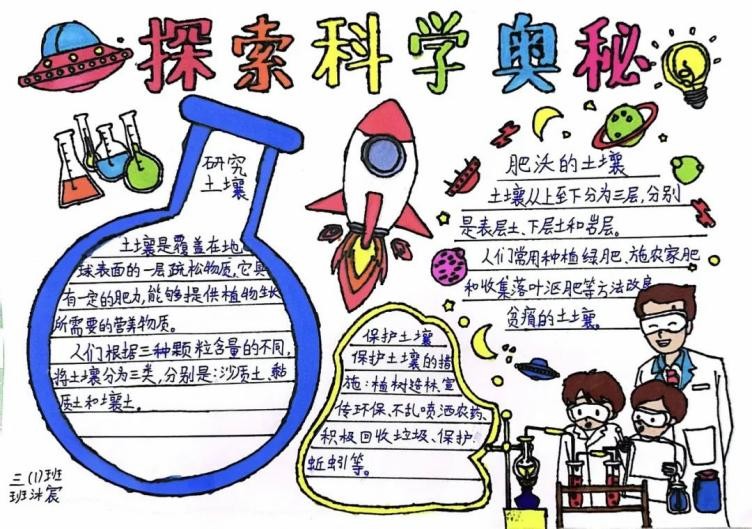 探索科学奥秘
研究
土壤
土壤是覆盖在地
球表面的一层疏松物质,它具
有一定的肥力,能够提供植物生长
所需要的营养物质。
人们根据三种颗粒含量的不同,
将土壤分为三类,分别是:沙质土、黏
质土和壤土。
保护土壤
保护土壤的措
施:植树造林、宣
传环保、不乱喷洒农药、
积极回收垃圾、保护
蚯蚓等。
肥沃的土壤
土壤从上至下分为三层,分别
是表层土、下层土和岩层。
人们常用种植绿肥、施农家肥
和收集落叶沤肥等方法改良
贫瘠的土壤。
三(1)班
班冰宸